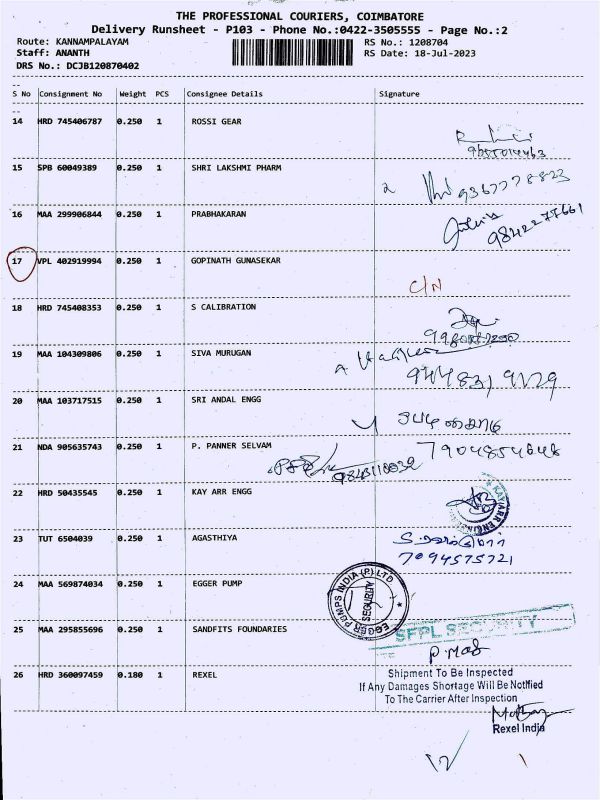 THE PROFESSIONAL COURIERS, COIMBATORE
Delivery Runsheet - P103 - Phone No.:0422-3505555 - Page No.:2
Route: KANNAMPALAYAM RS No.: 1208704
Staff: ANANTH RS Date: 18-Jul-2023
DRS No.: DCJB120870402
S No Consignment No Weight PCS Consignee Details Signature
14 HRD 745406787 0.250 1 ROSSI GEAR
15 SPB 60049389 0.250 1 SHRI LAKSHMI PHARM
9367778823
16 MAA 299906844 0.250 1 PRABHAKARAN
9842277661
17 VPL 402919994 0.250 1 GOPINATH GUNASEKAR
C/N
18 HRD 745408353 0.250 1 S CALIBRATION
19 MAA 104309806 0.250 1 SIVA MURUGAN
20 MAA 103717515 0.250 1 SRI ANDAL ENGG
21 NDA 905635743 0.250 1 P. PANNER SELVAM
22 HRD 50435545 0.250 1 KAY ARR ENGG
23 TUT 6504039 0.250 1 AGASTHIYA
7094575721
24 MAA 569874034 0.250 1 EGGER PUMP
EGGER PUMPS INDIA (P) LTD
SECURITY
25 MAA 295855696 0.250 1 SANDFITS FOUNDARIES
SFPL SECURITY
26 HRD 360097459 0.180 1 REXEL
Shipment To Be Inspected
If Any Damages Shortage Will Be Notified
To The Carrier After Inspection
Rexel India